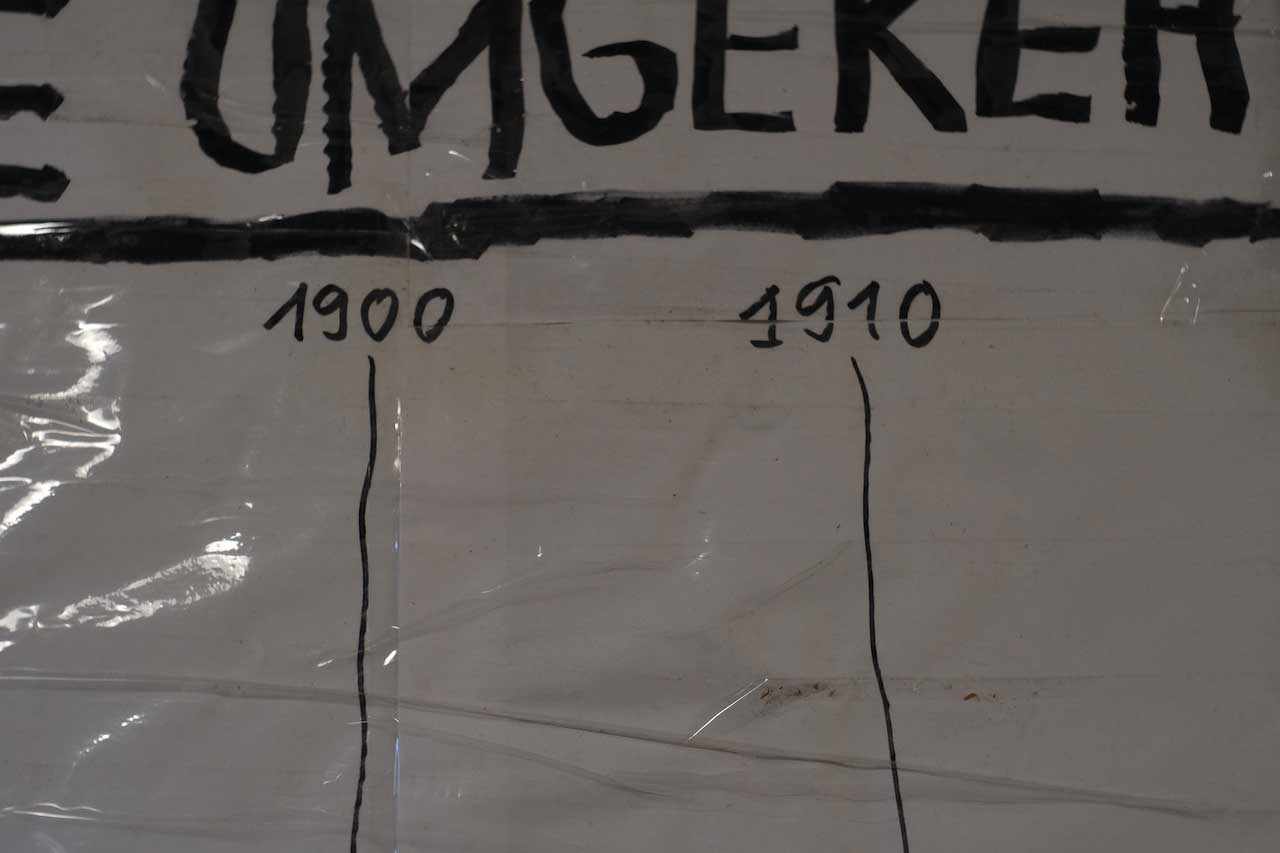 E UMGEKEH
1900 1910